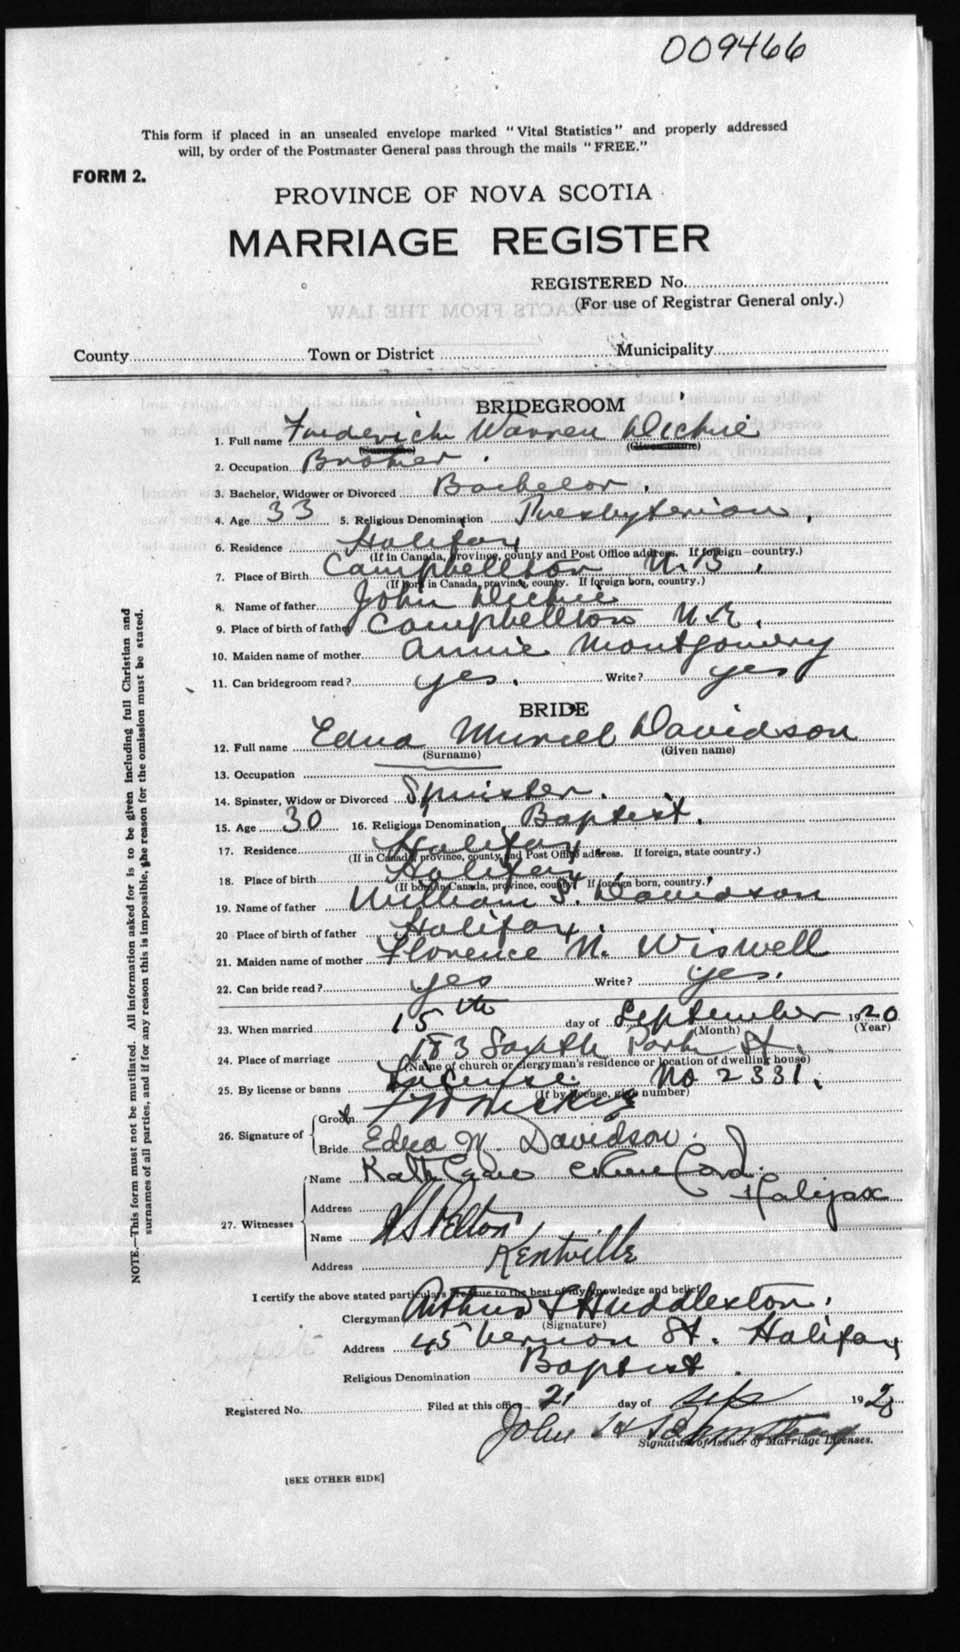 009466
This form if placed in an unsealed envelope marked "Vital Statistics" and properly addressed
will, by order of the Postmaster General pass through the mails "FREE."
FORM 2.
PROVINCE OF NOVA SCOTIA
MARRIAGE REGISTER
REGISTERED No.
(For use of Registrar General only.)
County Town or District Municipality
BRIDEGROOM
1. Full name Frederick Warren Dickie
(Surname) (Given name)
2. Occupation Broker.
3. Bachelor, Widower or Divorced Bachelor.
4. Age 33 5. Religious Denomination Presbyterian,
6. Residence Halifax
(If in Canada, province, county and Post Office address. If foreign—country.)
7. Place of Birth Campbellton N.B.
(If born in Canada, province, county. If foreign born, country.)
8. Name of father John Dickie
9. Place of birth of father Campbellton
10. Maiden name of mother Annie Montgomery
11. Can bridegroom read? yes. Write? yes
BRIDE
12. Full name Edna Muriel Davidson
(Surname) (Given name)
13. Occupation
14. Spinster, Widow or Divorced Spinster.
15. Age 30 16. Religious Denomination Baptist.
17. Residence Halifax
(If in Canada, province, county and Post Office address. If foreign, state country.)
18. Place of birth Halifax
(If born in Canada, province, county. If foreign born, country.)
19. Name of father William S. Davidson
20 Place of birth of father Halifax.
21. Maiden name of mother Florence N. Wiswell
22. Can bride read? yes Write? yes.
23. When married 15th day of September 1920
(Month) (Year)
24. Place of marriage 183 South Park St.
(Name of church or clergyman's residence or location of dwelling house)
25. By license or banns License No 2331.
(If by license, give number)
26. Signature of Groom
Bride Edna M. Davidson.
27. Witnesses
Name
Address Halifax
Name Pelton
Address Kentville
I certify the above stated particulars are true to the best of my knowledge and belief.
Clergyman Arthur S Huddleston.
(Signature)
Address 45 Vernon St. Halifax
Religious Denomination Baptist.
Registered No. Filed at this office 21 day of Sep 1920
John H
Signature of Issuer of Marriage Licenses.
[SEE OTHER SIDE]
NOTE.—This form must not be mutilated. All information asked for is to be given including full Christian and
surnames of all parties, and if for any reason this is impossible, the reason for the omission must be stated.
EXTRACTS FROM THE LAW